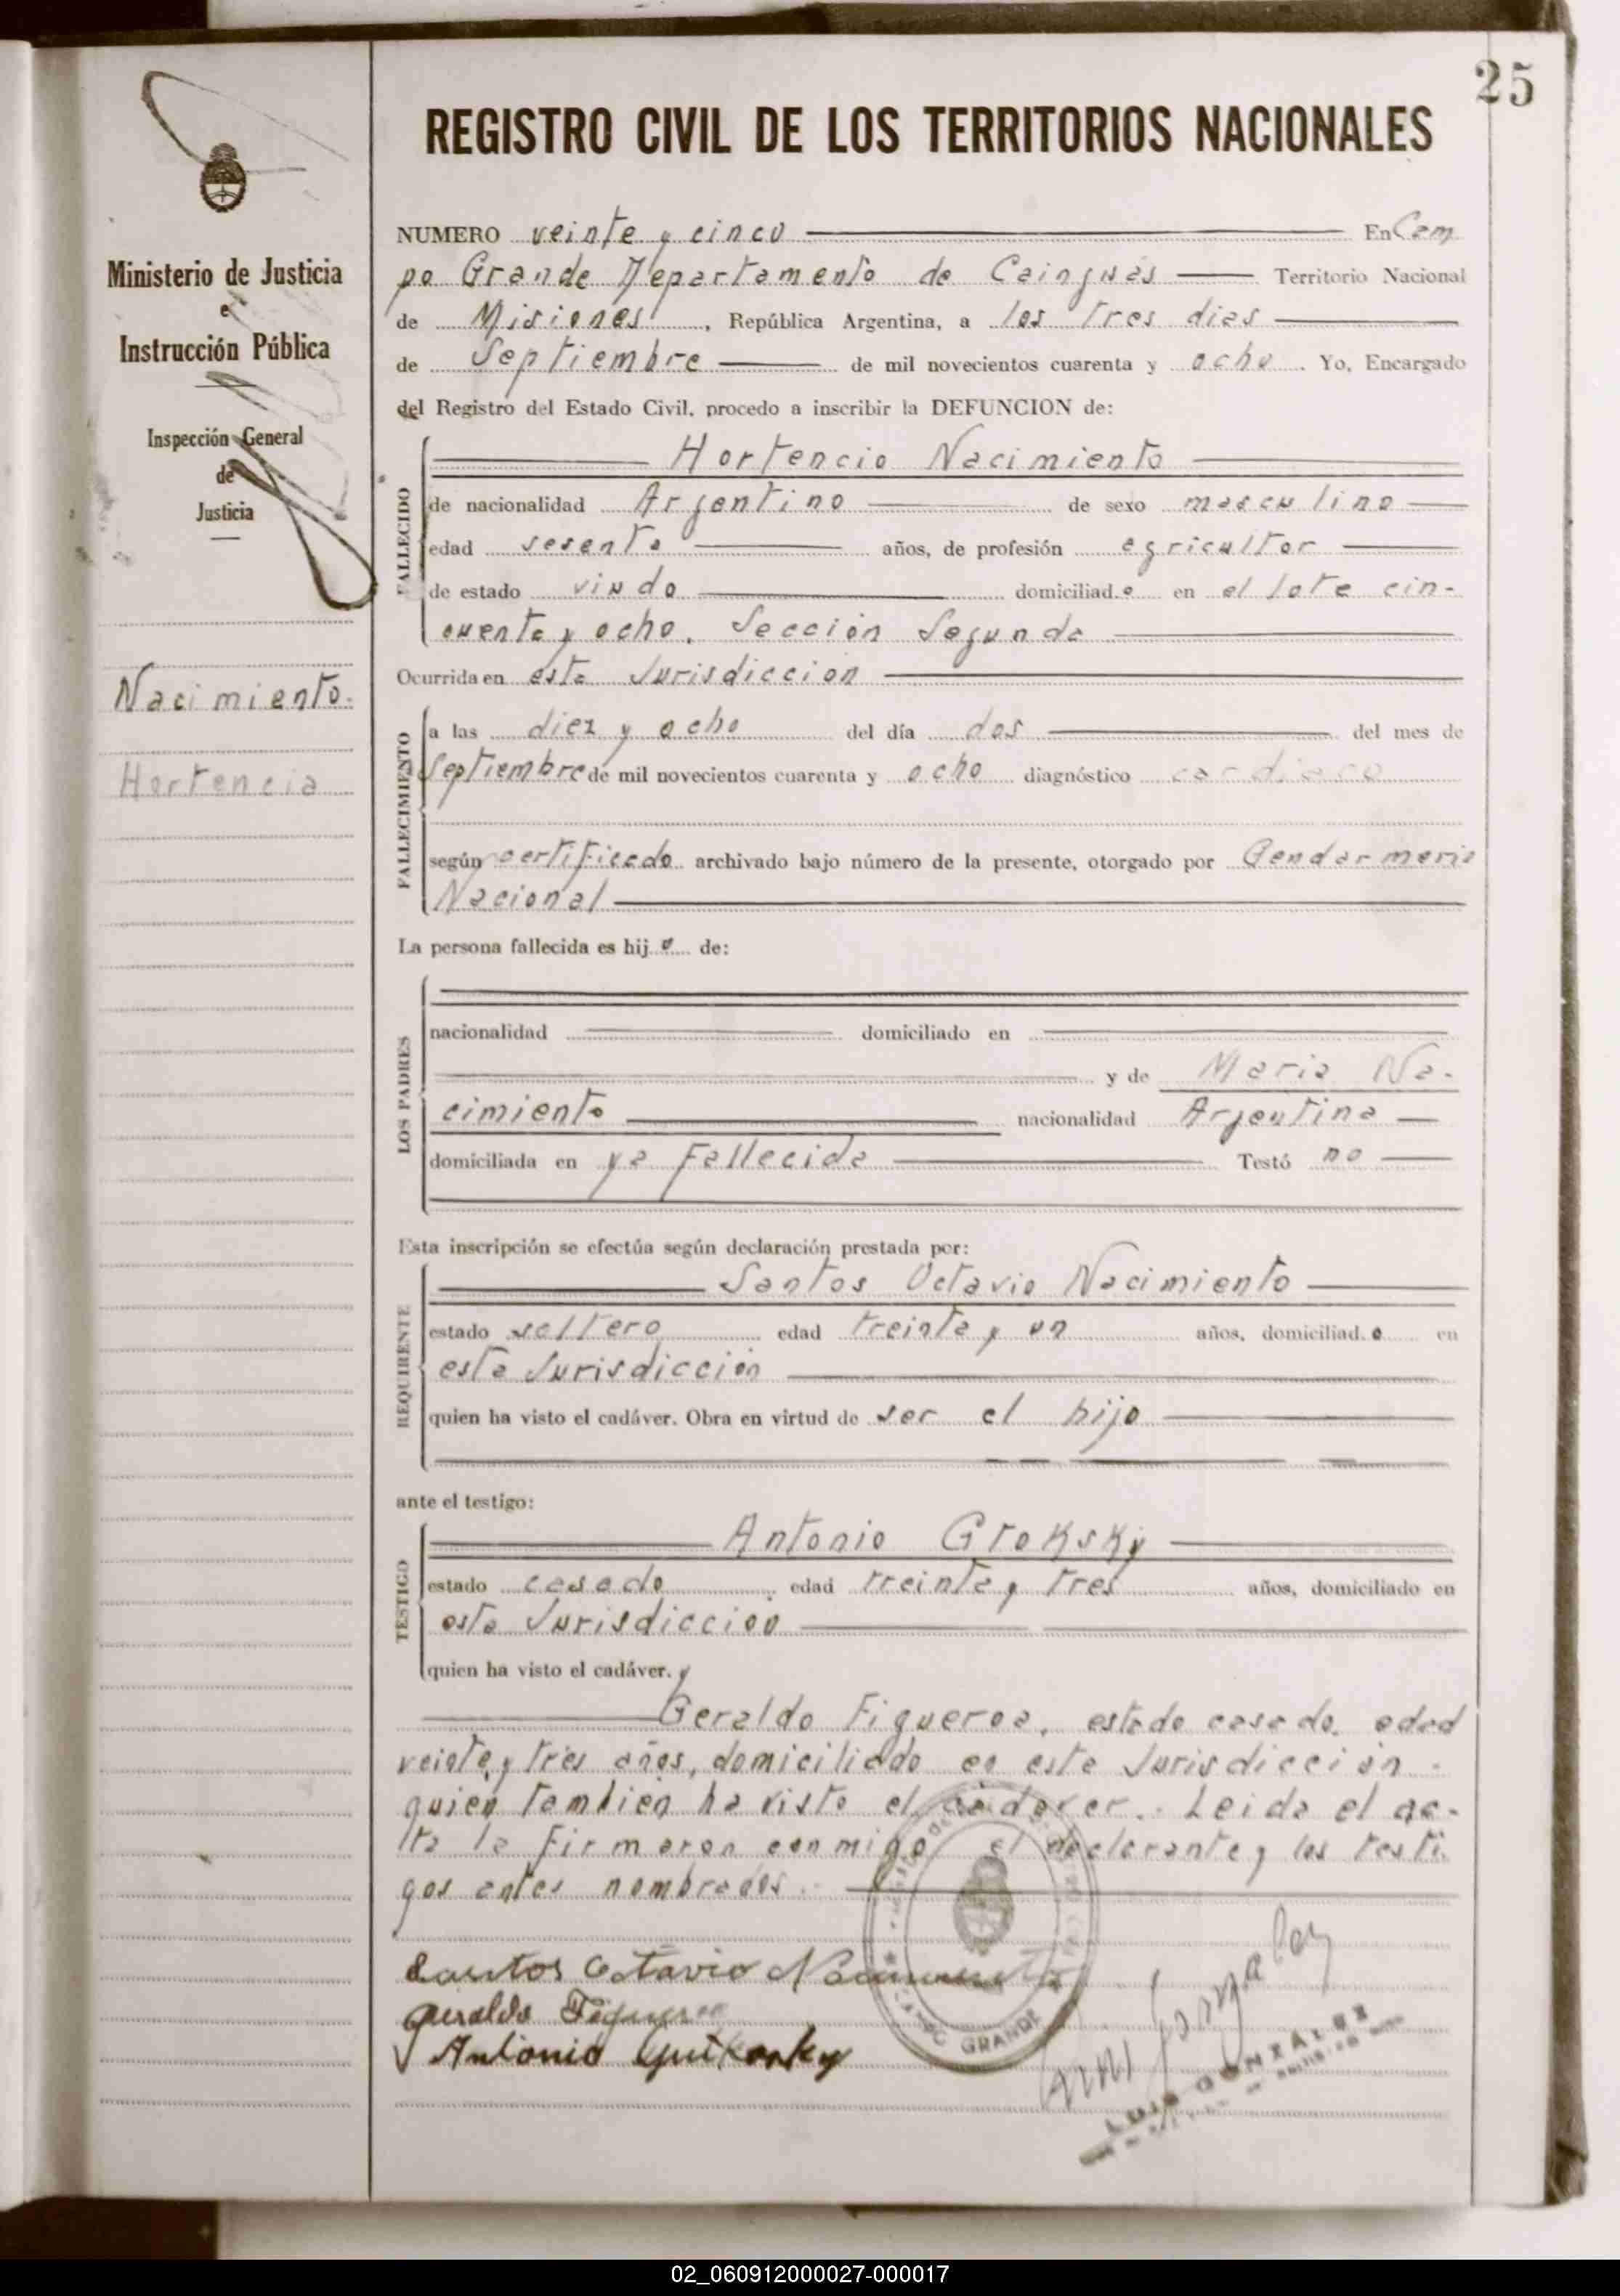 25
REGISTRO CIVIL DE LOS TERRITORIOS NACIONALES
Ministerio de Justicia
e
Instrucción Pública
Inspección General
de
Justicia
Nacimiento.
Hortencia
NUMERO veinte y cinco En Cam
po Grande Departamento de Cainguás Territorio Nacional
de Misiones, República Argentina, a los tres dias
de Septiembre de mil novecientos cuarenta y ocho. Yo, Encargado
del Registro del Estado Civil, procedo a inscribir la DEFUNCION de:
FALLECIDO
Hortencio Nacimiento
de nacionalidad Argentino de sexo masculino
edad sesenta años, de profesión agricultor
de estado viudo domiciliado en el lote cin-
cuenta y ocho. Sección Segunda
Ocurrida en esta Jurisdicción
FALLECIMIENTO
a las diez y ocho del día dos del mes de
Septiembre de mil novecientos cuarenta y ocho diagnóstico cardiaco
según certificado archivado bajo número de la presente, otorgado por Gendarmeria
Nacional
La persona fallecida es hijo de:
LOS PADRES
nacionalidad domiciliado en
y de Maria Na-
cimiento nacionalidad Argentina
domiciliada en ya fallecida Testó no
Esta inscripción se efectúa según declaración prestada por:
REQUIRENTE
Santos Octavio Nacimiento
estado soltero edad treinta y un años, domiciliado en
esta Jurisdicción
quien ha visto el cadáver. Obra en virtud de ser el hijo
ante el testigo:
TESTIGO
Antonio Groksky
estado casado edad treinta y tres años, domiciliado en
esta Jurisdiccion
quien ha visto el cadáver. y
Geraldo Figueroa, estado casado, edad
veinte y tres años, domiciliado en esta Jurisdicción -
quien tambien ha visto el cadaver.- Leida el ac-
ta la firmaron conmigo el declarante y los testi
gos antes nombrados.-
Santos Octavio Nacimiento
Geraldo Figueroa
Antonio
CAMPO GRANDE
LUIS GONZALEZ
02_060912000027-000017